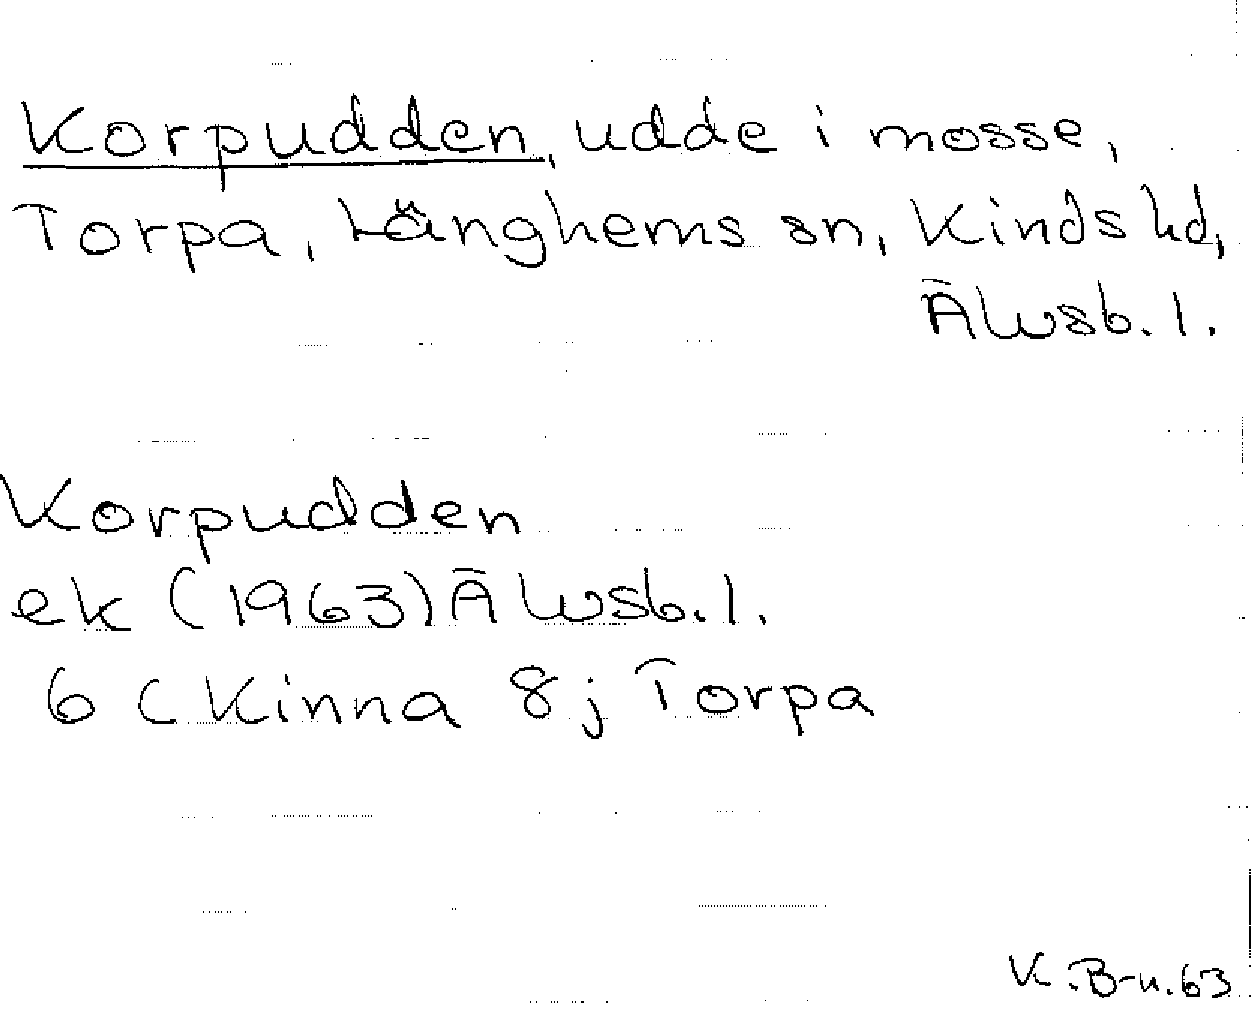 Korpudden, udde i mosse,
Torpa, Länghems sn, Kinds hd,
Älvsb. l.
Korpudden
ek (1963) Älvsb. l.
6 C Kinna 8 j Torpa
K. B-n. 63